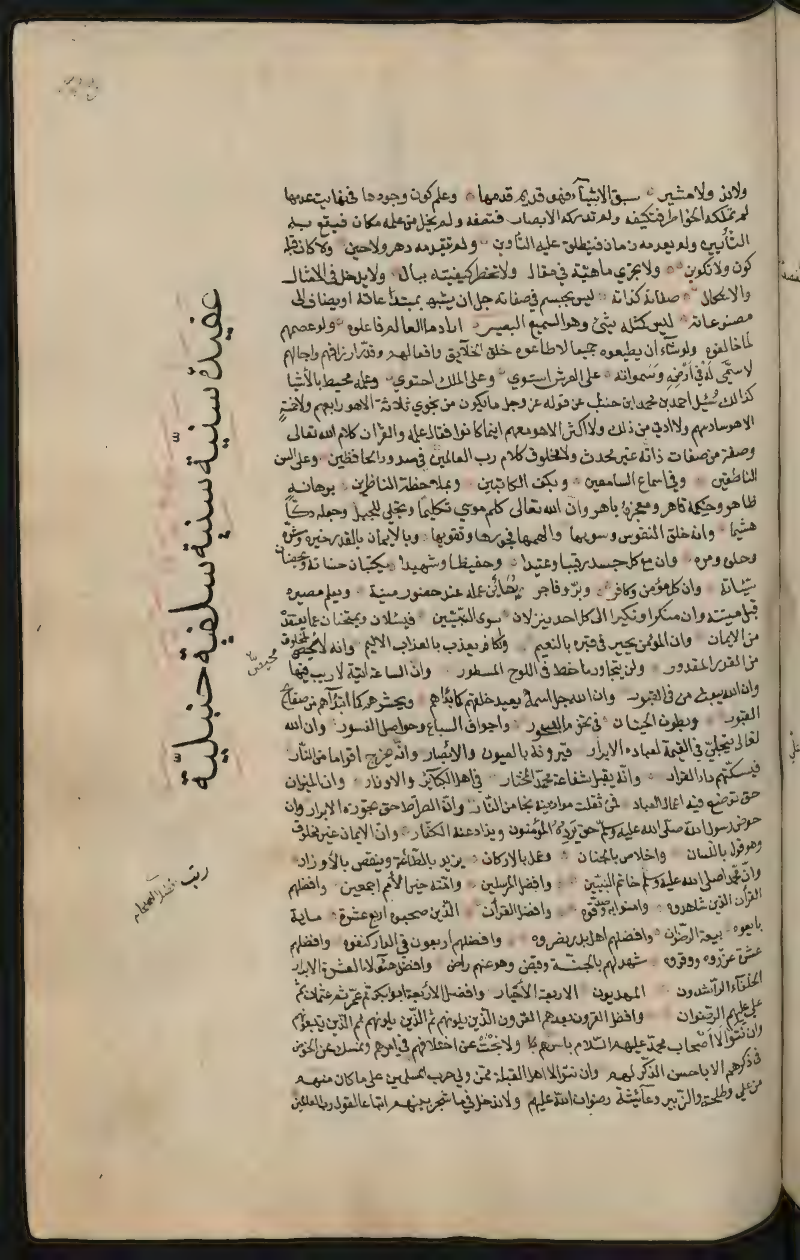 ولا ند ولا مشير سبق الاشيآ فهو قديم قدمها وعلم كون وجودها في نهايت عدمها
لم تملكه الخواطر فتكيفه ولم تدركه الابصار فتصفه ولم يخل من علمه مكان فيقع به
التأيين ولم يعدمه زمان فينطلق عليه التأوين ولم يتقدمه دهر ولا حين ولا كان قبله
كون ولا تكوين ولا تجري ماهيته في مقال ولا تخطر كيفيته ببال ولا يدخل في الامثال
والاشكال صفاته كذاته ليس بجسم في صفاته جل ان يشبه بمبتدعاته او يضاف الى
مصنوعاته ليس كمثله شئ وهو السميع البصير اراد ما العالم فاعلوه ولو عصمهم
لما خالفوه ولو شآء أن يطيعوه جميعا لاطاعوه خلق الخلآيق وافعالهم وقدر ارزاقهم واجالهم
لا سمي له في أرضه وسمواته على العرش استوي وعلى الملك احتوي وعلمه محيط بالأشيا
كذالك سُئل احمد بن محمد ابن حنبل عن قوله عز وجل ما يكون من نجوي ثلاثة الا هو رابعهم ولا خمسة
الا هو سادسهم ولا ادني من ذلك ولا اكثر الا هو معهم اينما كانوا فقال علمه والقرآن كلام الله تعالى
وصفة من صفات ذاته غير محدث ولا مخلوق كلام رب العالمين في صدور الحافظين وعلى السن
الناطقين وفي اسماع السامعين وبكف الكاتبين وبملاحظة الناظرين برهانه
ظاهر وحكمه قاهر ومعجزه باهر وان الله تعالى كلم موسي تكليما وتجلي للجبل وجعله دكّا
هشيما وانه خلق النفوس وسويها والهمها فجورها وتقويها وبالايمان بالقدر خيره وشرّه
وحلوه ومره وان مع كل جسد رقيبا وعتيدا وحفيظا وشهيدا يكتبان حسناته ويحصيان
سيئاته وان كل مؤمن وكافر وبرّ وفاجر يعاين عمله عند حضور منيته ويعلم مصيره
قبل ميتته وان منكرا ونكيرا الى كل احد ينزلان سوى النبيّين فيسئلان ويمتحنان عما يعتقد
من الايمان وان المؤمن يحبر في قبره بالنعيم وكافر يعذب بالعذاب الاليم وانه لا محيص لمخلوق
محيص
من القدر المقدور ولن يتجاوز ما خط في اللوح المسطور وان الساعة اتية لا ريب فيها
وان الله يبعث من في القبور وان الله جل اسمه يعيد خلقهم كما بدأهم ويحشرهم كما ابتدأهم من صفائح
القبور وبطون الحيتان في تخوم البحور واجواف السباع وحواصل النسور وان الله
تعالى يتجلى في القيمة لعباده الابرار فيرونه بالعيون والابصار وانه يخرج اقواما من النّار
فيسكنهم دار القرار وانّه يقبل شفاعة محمّد المختار في اهل الكبآئر والاوزار وان الميزان
حق توضع فيه اعمال العباد فمن ثقلت موازينه نجا من النّار وان الصراط حق يجوزه الابرار وان
حوض رسول اللّه صلّى الله عليه وسلّم حق يَرِدُه المؤمنون ويذاد عنه الكفّار وانّ الايمان غير مخلوق
وهو قول باللسان واخلاص بالجنان وعمل بالاركان يزيد بالطّاعة وينقص بالأوزار
وانّ محمّدا صلى الله عليه وسلم خاتم النبيّين وافضل المرسلين وامّته خير الأمم اجمعين وافضلهم
القرآن الذين شاهدوه وامنوا به وصدّقوه وافضل القرأن الّذين صحبوه اربع عشرة ماية
بايعوه بيعة الرضوان وافضلهم اهل بدر نصروه وافضلهم اربعون في الدار كنفوه وافضلهم
عشرة عزّروه ووقروه شهد لهم بالجنّة وقبض وهو عنهم راض وافضل هؤلاء العشرة الابرار
الخلفآء الرآشدون المهديون الاربعة الأخيار وافضل الاربعة ابو بكر ثم عمر ثم عثمان ثم
علي عليهم الرّضوان وافضل القرون بعدهم القرون الّذين يلونهم ثم الّذين يلونهم ثم الّذين يتبعونهم
وان نتوالا اصحاب محمّد عليهم السّلام باسرهم ولا نبحث عن اختلافهم في امرهم ونمسك عن الخوض
في ذكرهم الا باحسن الذّكر لهم وان نتوالا اهل القبلة ممّن ولي حرب المسلمين على ما كان منهم
من علي وطلحة والزّبير وعآئشة رضوان اللّه عليهم ولا ندخل فيما شجر بينهم اتباعا لقول رب العالمين
عقيدة سنيّة سنية سلفية حنبليّة
رتب افضل الصحابه